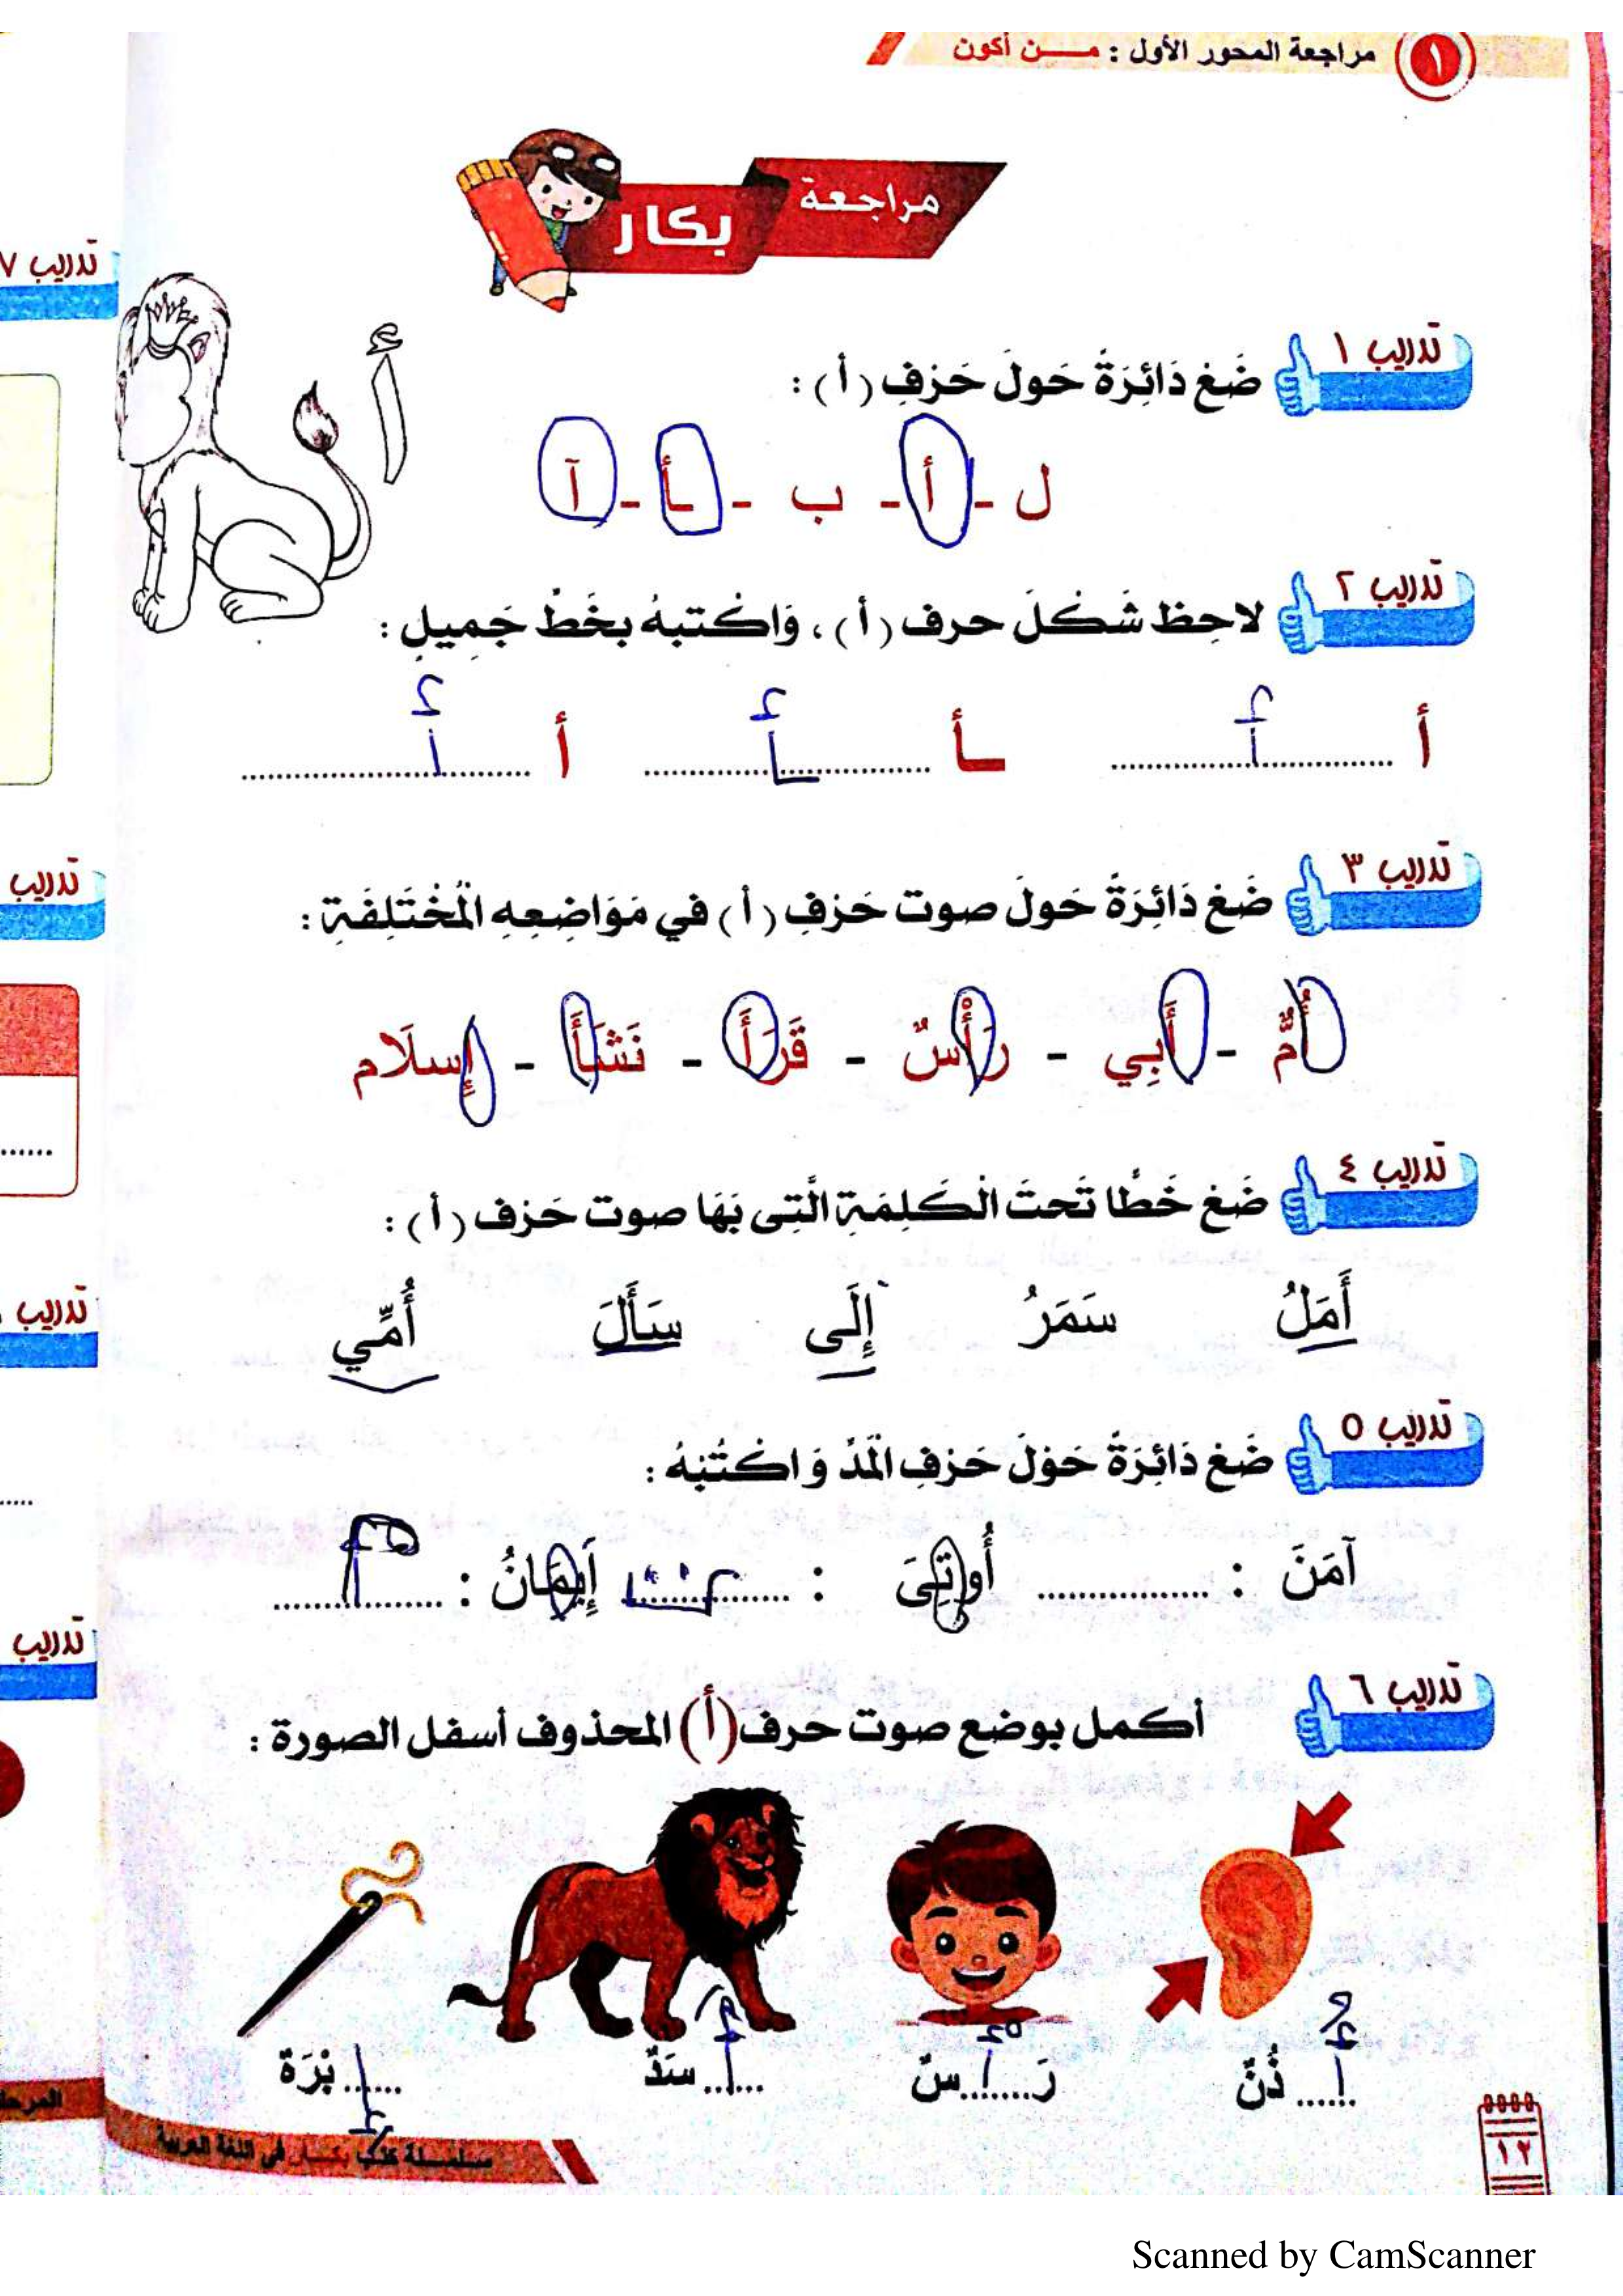 مراجعة المحور الأول : مـــن أكون
١
مراجعة
بكار
تدريب ١
ضَعْ دَائِرَةً حَولَ حَرْفِ (أ) :
ل - أ - ب - ـأ - آ
أ
تدريب ٢
لاحِظ شَكْلَ حرف (أ)، وَاكْتبهُ بخَطٌ جَمِيلِ :
أ أَ ـأ ـأَ أ أَ
تدريب ٣
ضَعْ دَائِرَةً حَولَ صوت حَرْفِ (أ) في مَوَاضِعِهِ الْمُخْتَلِفَةِ :
أُمٌّ - أَبِي - رَأْسٌ - قَرَأَ - نَشَأَ - إِسلَام
تدريب ٤
ضَعْ خَطًّا تَحتَ الْكَلِمَةِ الَّتِى بَهَا صوت حَرْف (أ) :
أَمَلُ سَمَرُ إِلَى سَأَلَ أُمِّي
تدريب ٥
ضَعْ دَائِرَةً حَوْلَ حَرْفِ الْمَدِّ وَ اكْتُبْهُ :
آمَنَ : .................. أُوتِىَ : .................. إَيمَانُ : ..................
تدريب ٦
أكمل بوضع صوت حرف (أ) المحذوف أسفل الصورة :
أُ ذُنٌ رَ أْ سٌ أَ سَدٌ إ بْرَةٌ
سلسلة كتب بكار في اللغة العربية
١٢
تدريب ٧
تدريب
تدريب
تدريب
المرحلة
Scanned by CamScanner